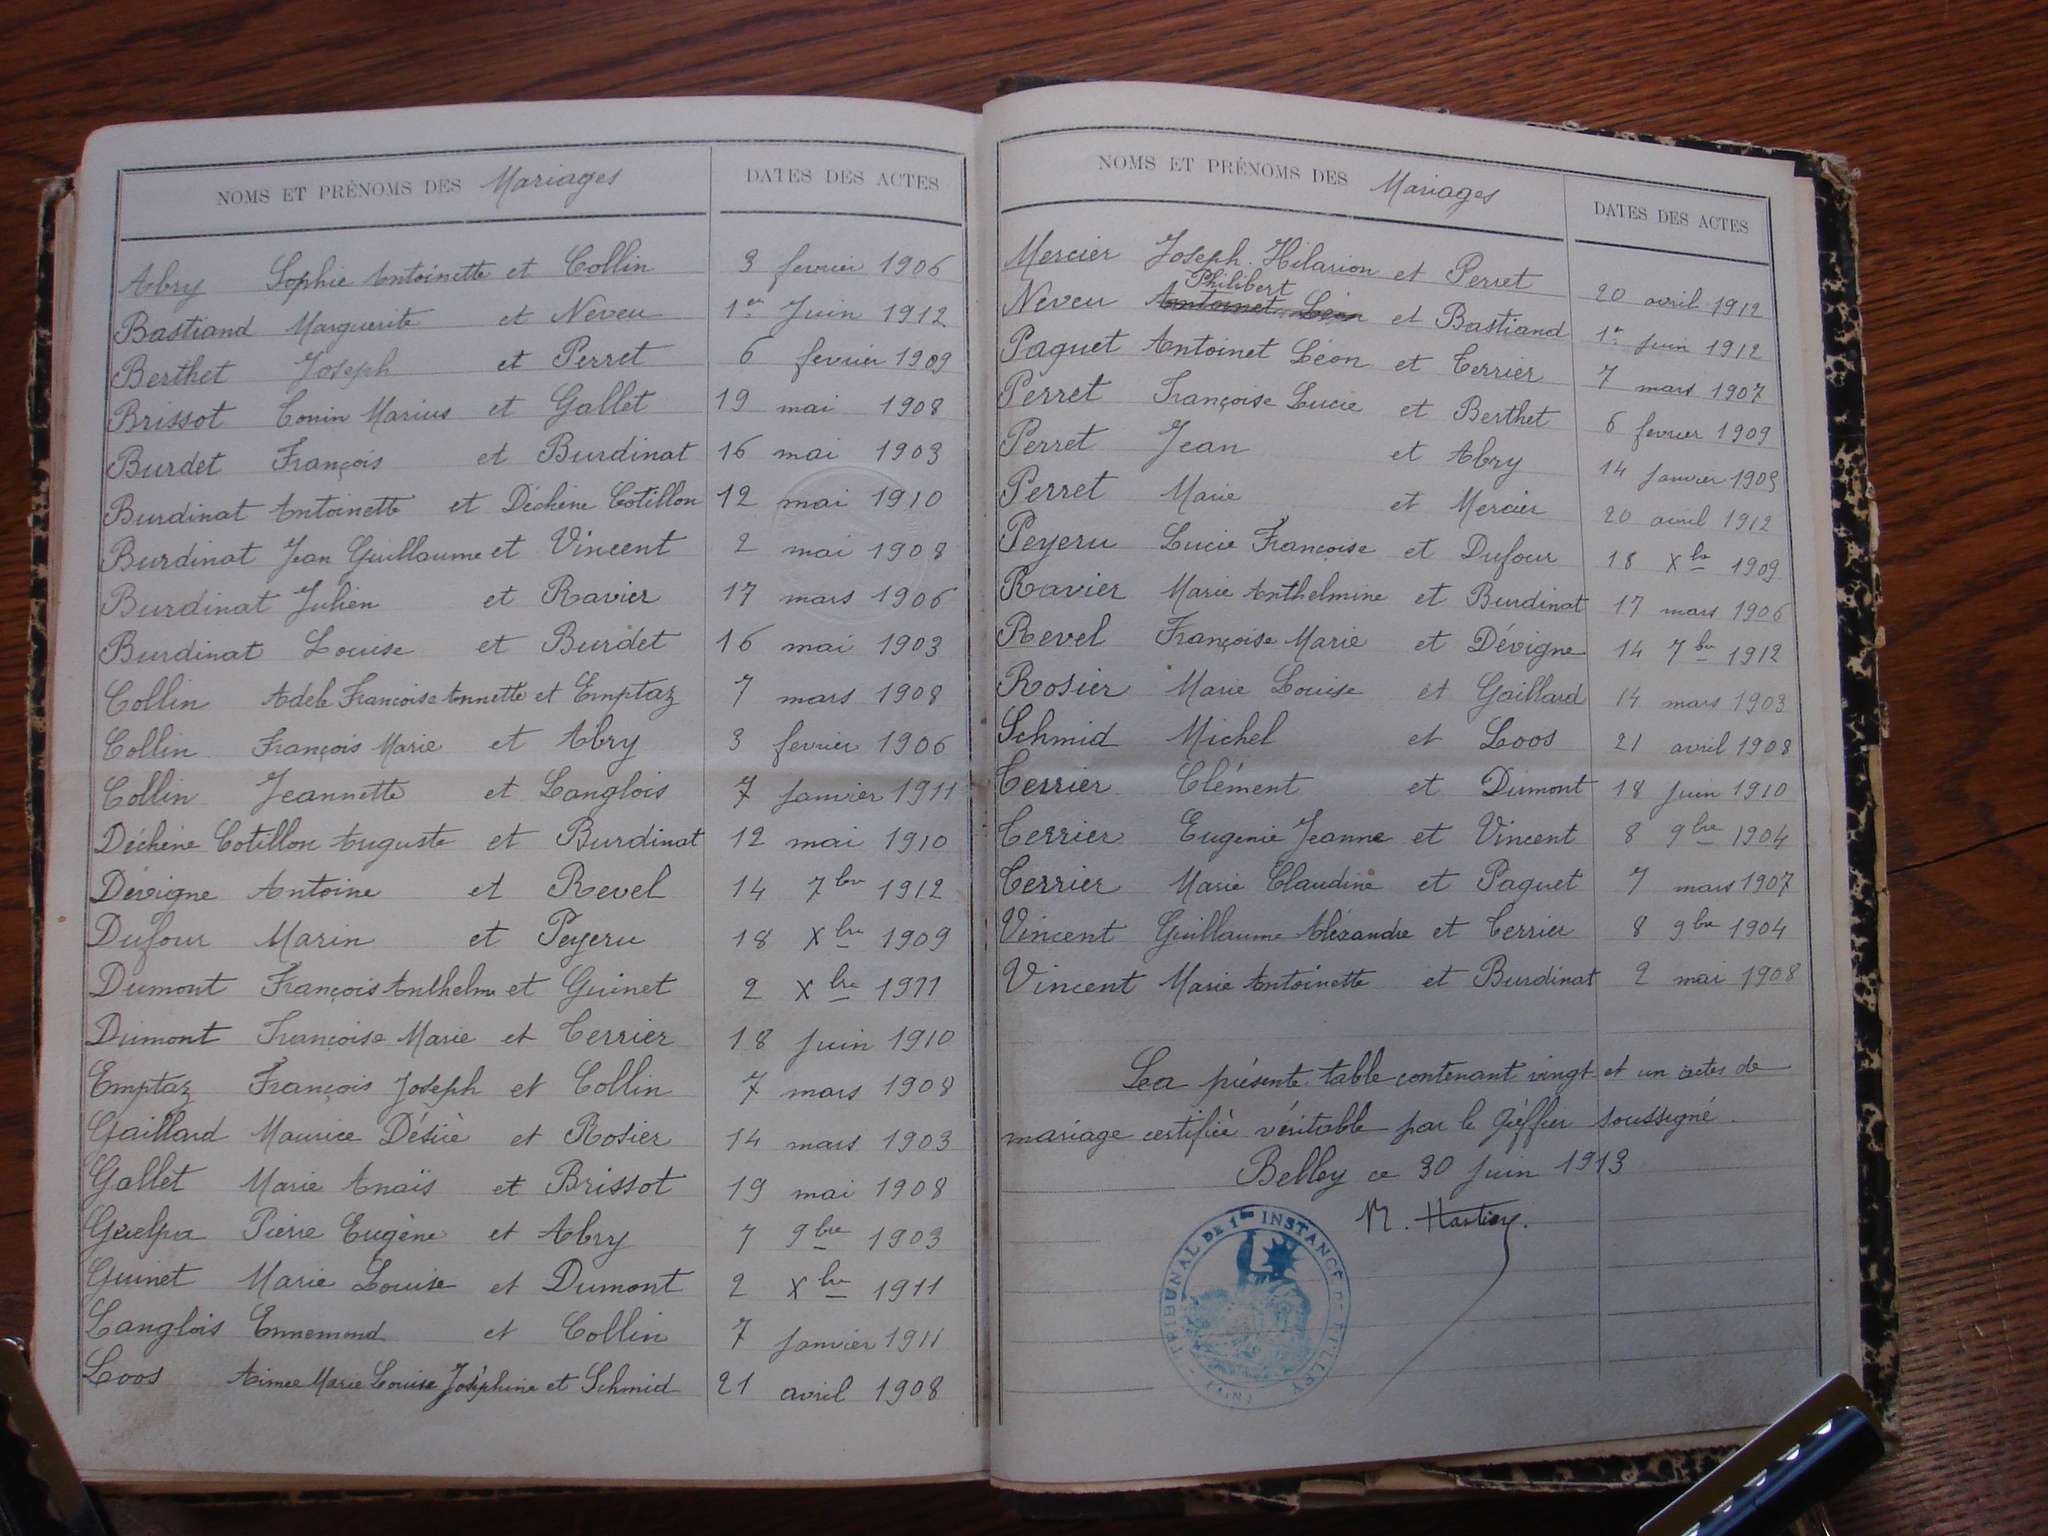 NOMS ET PRÉNOMS DES Mariages DATES DES ACTES
Abry Sophie Antoinette et Collin 3 fevrier 1906
Bastiand Marguerite et Neveu 1er Juin 1912
Berthet Joseph et Perret 6 fevrier 1909
Brissot Tonin Marius et Gallet 19 mai 1908
Burdet François et Burdinat 16 mai 1903
Burdinat Antoinette et Déchène Cotillon 12 mai 1910
Burdinat Jean Guillaume et Vincent 2 mai 1908
Burdinat Julien et Ravier 17 mars 1906
Burdinat Louise et Burdet 16 mai 1903
Collin Adele Françoise Annette et Emptaz 7 mars 1908
Collin François Marie et Abry 3 fevrier 1906
Collin Jeannette et Langlois 7 Janvier 1911
Déchène Cotillon Auguste et Burdinat 12 mai 1910
Dévigne Antoine et Revel 14 7bre 1912
Dufour Marin et Peyeru 18 Xbre 1909
Dumont François Anthelme et Guinet 2 Xbre 1911
Dumont Françoise Marie et Terrier 18 Juin 1910
Emptaz François Joseph et Collin 7 mars 1908
Gaillard Maurice Désiré et Rosier 14 mars 1903
Gallet Marie Anaïs et Brissot 19 mai 1908
Guelpa Pierre Eugène et Abry 7 9bre 1903
Guinet Marie Louise et Dumont 2 Xbre 1911
Langlois Ennemond et Collin 7 Janvier 1911
Loos Aimee Marie Louise Joséphine et Schmid 21 avril 1908
NOMS ET PRÉNOMS DES Mariages DATES DES ACTES
Mercier Joseph Hilarion et Perret 20 avril 1912
Philibert
Neveu Antoinet Léon et Bastiand 1er Juin 1912
Paquet Antoinet Léon et Terrier 7 mars 1907
Perret Françoise Lucie et Berthet 6 fevrier 1909
Perret Jean et Abry 14 Janvier
Perret Marie et Mercier 20 avril 1912
Peyeru Lucie Françoise et Dufour 18 Xbre 1909
Ravier Marie Anthelmine et Burdinat 17 mars 1906
Revel Françoise Marie et Dévigne 14 7bre 1912
Rosier Marie Louise et Gaillard 14 mars 1903
Schmid Michel et Loos 21 avril 1908
Terrier Clément et Dumont 18 Juin 1910
Terrier Eugenie Jeanne et Vincent 8 9bre 1904
Terrier Marie Claudine et Paquet 7 mars 1907
Vincent Guillaume Aléxandre et Terrier 8 9bre 1904
Vincent Marie Antoinette et Burdinat 2 mai 1908
La présente table contenant vingt et un actes de
mariage certifiée véritable par le Gréffier soussigné.
Belley ce 30 Juin 1913
TRIBUNAL DE 1ère INSTANCE DE BELLEY (AIN)